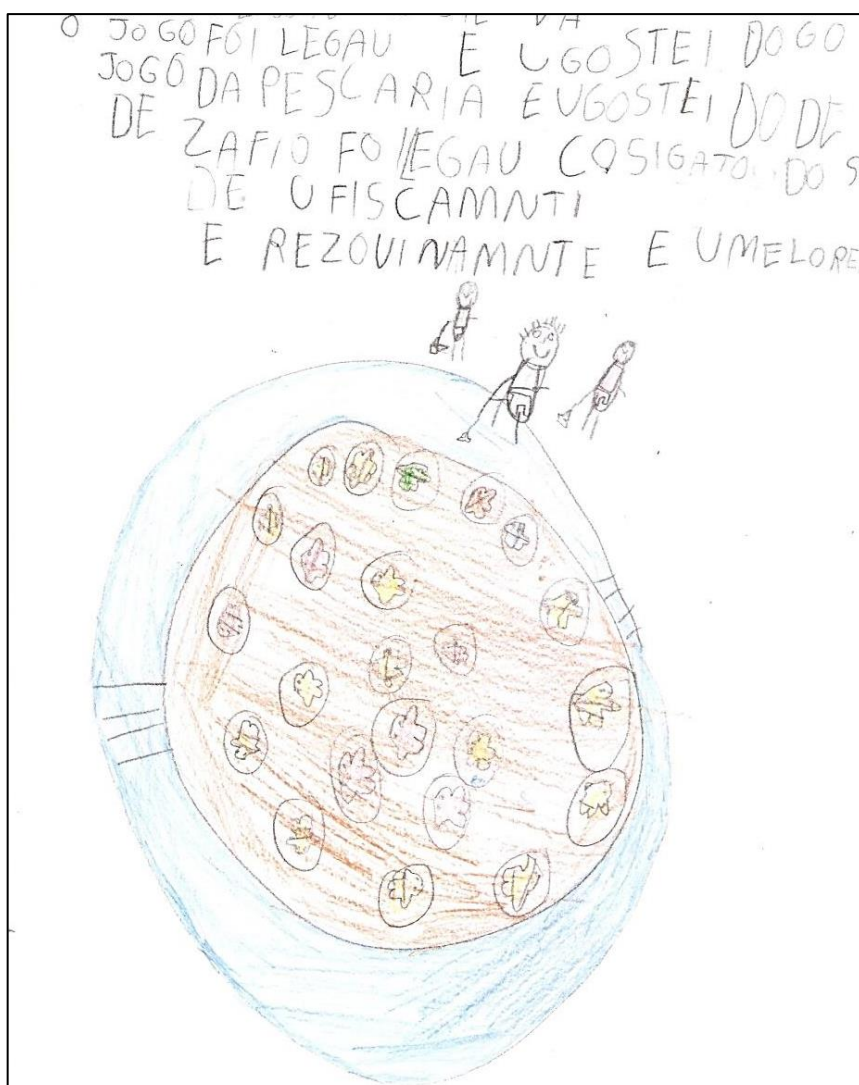 VA
O JOGO FOI LEGAU E UGOSTEI DO GO
JOGO DA PESCARIA EUGOSTEI DO DE
DE ZAFIO FO LEGAU COSIGATO DO S
DE UFISCAMNTI
E REZOUINAMNTE E UMELORE